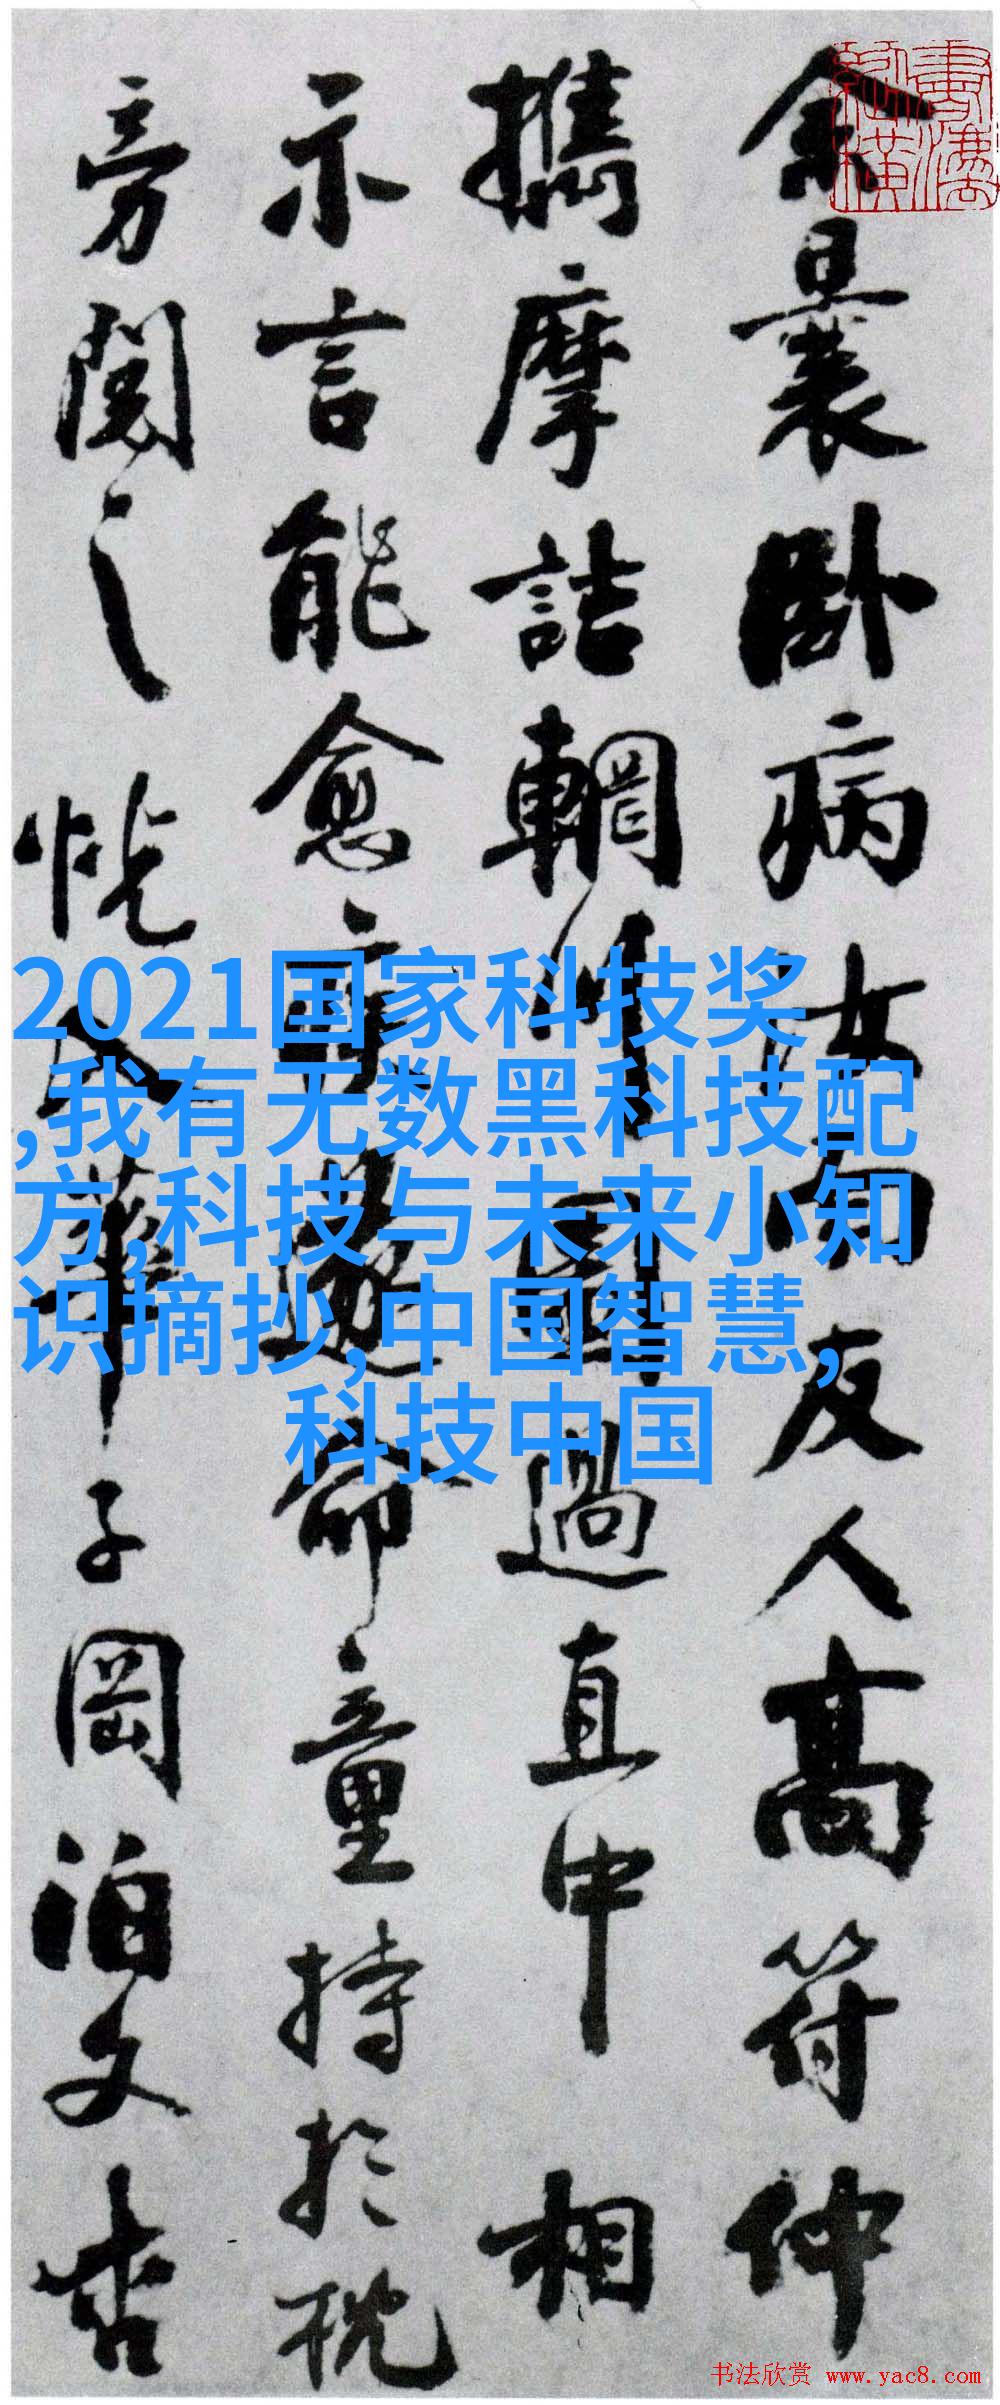 余曩卧病汝南友人高符仲
攜摩詰輞川圖過直中相
示言能愈疾遂命童持於枕
旁閱之恍入華子岡泊文杏
2021国家科技奖
,我有无数黑科技配
方,科技与未来小知
识摘抄,中国智慧,
科技中国
书法欣赏 www.yac8.com